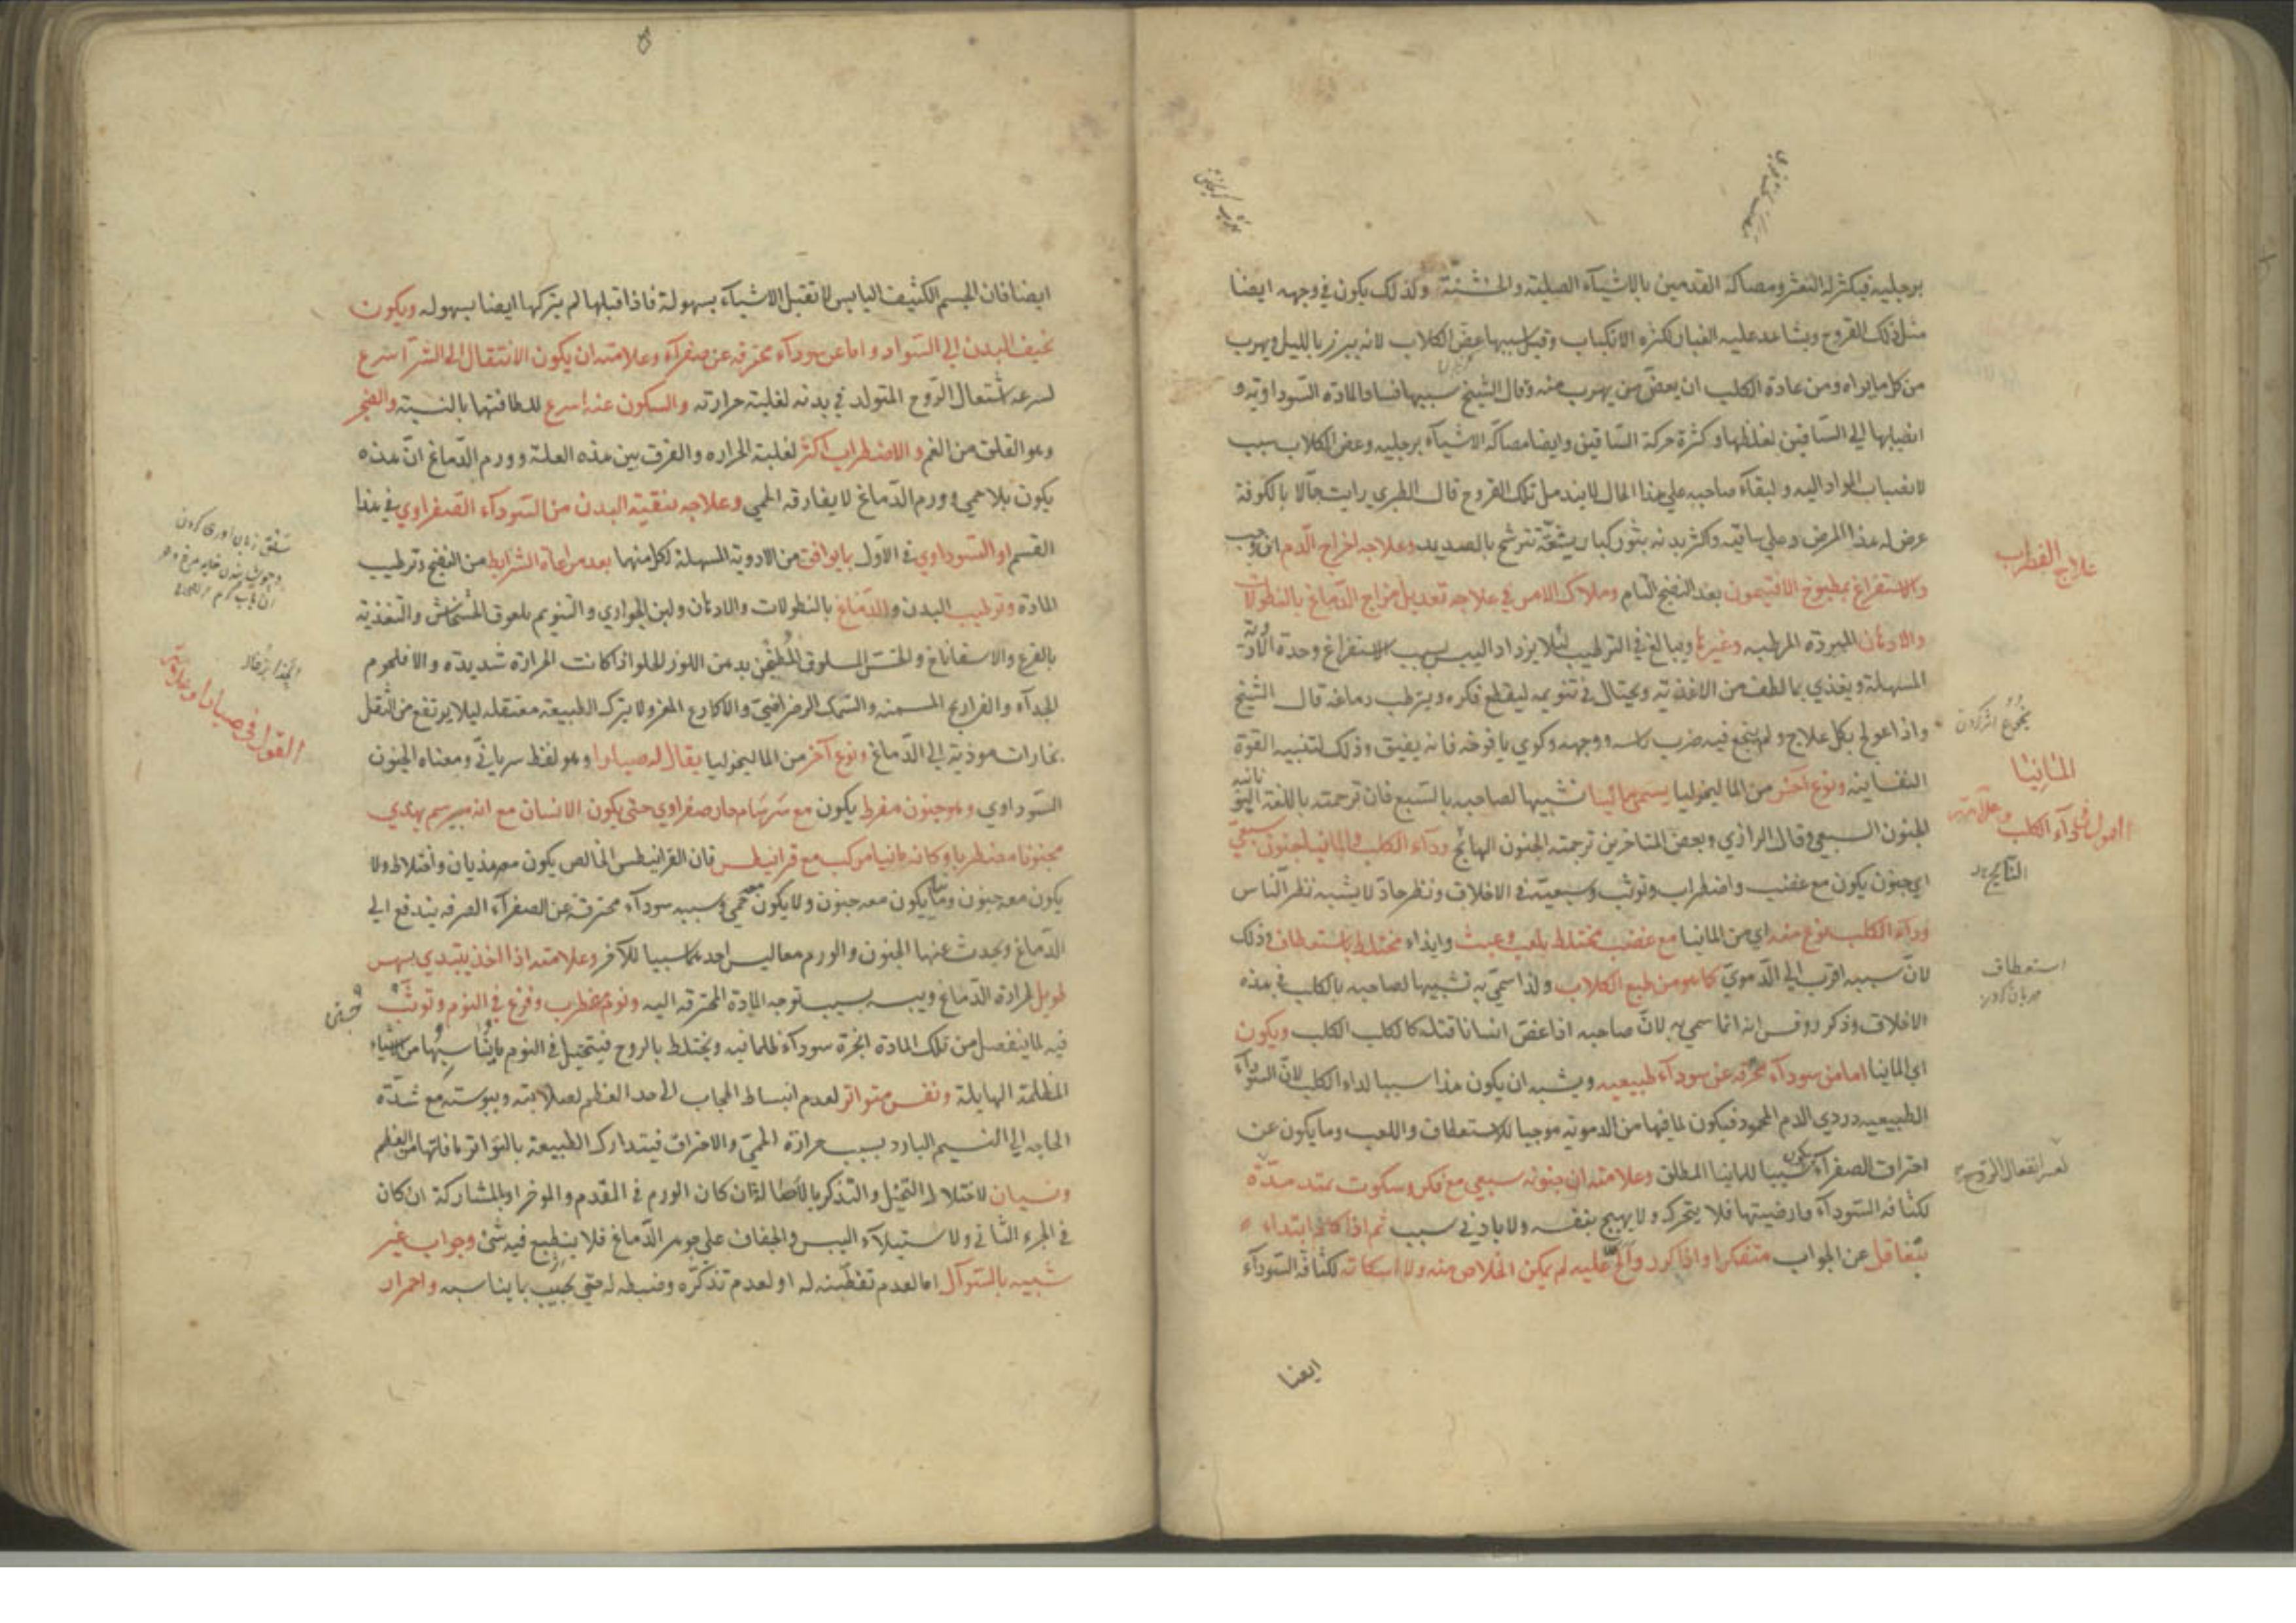 برجليه فيكثر له التعثر ومصاكة القدمين بالاشيآء الصلبة والخشنة وكذلك يكون في وجهه ايضا
مثل ذلك القروح ويشاهد عليه الغبار لكثرة الانكباب وقيل سببها عض الكلاب لانه يبرز بالليل ويهرب
من كل ما يراه ومن عادة الكلب ان يعض من يهرب منه وقال الشيخ سببها فساد المادة السوداوية و
انصبابها الي الساقين لغلظها وكثرة حركة الساقين وايضا مصاكة الاشيآء برجليه وعض الكلاب سبب
لانصباب المواد اليه ولبقآء صاحبه علي هذا الحال لا يندمل تلك القروح قال الطبري رايت حمالا بالكوفة
عرض له هذا المرض وعلي ساقيه واكثر بدنه بثور كبار بشعة تترشح بالصديد وعلاجه اخراج الدم ان وجب
والاستفراغ بمطبوخ الافتيمون بعد النضج التام وملاك الامر في علاجه تعديل مزاج الدماغ بالنطولات
والادهان المبردة المرطبه وغيرها ويبالغ في الترطيب لئلا يزداد اليبس بسبب الاستفراغ وحدة الادوية
المسهلة ويغذي بما لطف من الاغذية ويحتال في تنويمه ليقطع فكره ويترطب دماغه قال الشيخ
واذا عولج بكل علاج ولم ينجع فيه ضرب راسه ووجهه وكوي يافوخه فانه يفيق وذلك لتنبيه القوة
النفسانية ونوع آخر من الماليخوليا يسمي مانيا تشبيها لصاحبه بالسبع فان ترجمته باللغة اليونانيه
الجنون السبعي وقال الرازي وبعض المتاخرين ترجمته الجنون الهائج ودآء الكلب والمانيا جنون سبعي
اي جنون يكون مع غضب واضطراب وتوثب وسبعية في الاخلاق ونظر حاد لا يشبه نظر الناس
ودآء الكلب نوع منه اي من المانيا مع غضب مختلط بلعب وعبث وايذاء مختلط باستعطاف وذلك
لان سببه اقرب الي الدموي كما هو من طبع الكلاب ولذا سمي به تشبيها لصاحبه بالكلب في هذه
الاخلاق وذكر روفس انه انما سمي به لان صاحبه اذا عض انسانا قتله كالكلب الكلب ويكون
اي المانيا اما من سودآء محترقه عن سودآء طبيعيه ويشبه ان يكون هذا سببا لداء الكلب لان السودآء
الطبيعيه دردي الدم المحمود فيكون لما فيها من الدمويه موجبا للاستعطاف واللعب وما يكون عن
احتراق الصفرآء يكون سببا للمانيا المطلق وعلامته ان جنونه سبعي مع فكر وسكوت يمتد مدة
لكثافة السودآء وارضيتها فلا يتحرك ولا يهيج بنفسه ولا بادني سبب ثم اذا كلم ابتداء
يتغافل عن الجواب متفكرا واذا كرر والح عليه لم يمكن الخلاص منه ولا اسكاته لكثافة السودآء
ايضا
علاج القطرب
المانيا
القول في دآء الكلب وعلامته
استعطاف
مهربان كردن
ايضا فان الجسم الكثيف اليابس لا تقبل الاشيآء بسهولة فاذا قبلها لم يتركها ايضا بسهوله ويكون
نحيف البدن الي السواد واما عن سودآء محترقه عن صفرآء وعلامته ان يكون الانتقال الي الشر اسرع
لسرعة اشتعال الروح المتولد في بدنه لغلبة حرارته والسكون عنه اسرع للطافتها بالنسبة والضجر
وهو القلق من الغم والاضطراب اكثر لغلبة الحراره والفرق بين هذه العلة وورم الدماغ ان هذه
يكون بلا حمي وورم الدماغ لا يفارقه الحمي وعلاجه تنقية البدن من السودآء الصفراوي في هذا
القسم او السوداوي في الاول بما يوافق من الادوية المسهلة لكل منهما بعد مراعاة الشرايط من النضج وترطيب
المادة وترطيب البدن والدماغ بالنطولات والادهان ولبن الجواري والتنويم بلعوق الخشخاش والتغذية
بالقرع والاسفاناخ والخس المسلوق المطجن بدهن اللوز الحلو اذا كانت الحرارة شديدة والا فلحوم
الجدآء والفراريج المسمنه والسمك الرضراضي والاكارع المغز ولا يترك الطبيعة معتقله ليلا يرتفع من الثقل
بخارات موذية الي الدماغ ونوع آخر من الماليخوليا يقال له صبارا وهو لفظ سرياني ومعناه الجنون
السوداوي وهو جنون مفرط يكون مع سرسام حار صفراوي حتي يكون الانسان مع انه مبرسم يهذي
مجنونا مضطربا وكانه مانيا مركب مع قرانيطس فان القرانيطس الخالص يكون معه هذيان واختلاط ولا
يكون معه جنون ومانيا يكون معه جنون ولا يكون معه حمي وسببه سودآء محترقة عن الصفرآء الصرفه يندفع الي
الدماغ ويحدث عنها الجنون والورم معا ليس احدهما سببا للآخر وعلامته اذا اخذ يبتدي بسهر
طويل لحرارة الدماغ ويبسه بسبب توجه المادة المحترقه اليه ونوم مضطرب وفزع في النوم وتوثب
فيه لما ينفصل من تلك المادة ابخرة سودآء ظلمانيه ويختلط بالروح فيتخيل في النوم ما يناسبها من الاشياء
المظلمة الهايلة ونفس متواتر لعدم انبساط الحجاب الي حد العظم لصلابته ويبوسته مع شدة
الحاجه الي النسيم البارد بسبب حرارة الحمي والاحتراق فيتدارك الطبيعة بالتواتر ما فاتها من العظم
ونسيان لاختلاط التخيل والتذكر بالاصالة ان كان الورم في المقدم والموخر او بالمشاركة ان كان
في الجزء الثاني ولاستيلآء اليبس والجفاف علي جوهر الدماغ فلا ينطبع فيه شئ وجواب غير
شبيه بالسوآل اما لعدم تفطنه له او لعدم تذكره وضبطه له حتي يجيب بما يناسبه واحمرار
القول في صبارا وعلامته